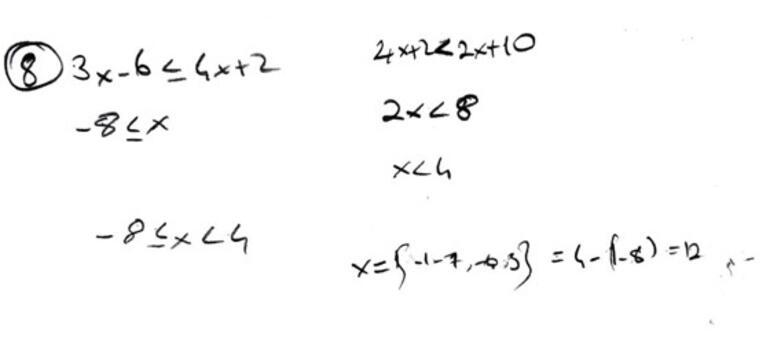 8 3x-6≤4x+2
-8≤x
-8≤x<4
4x+2<2x+10
2x<8
x<4
=4-(-8)=12